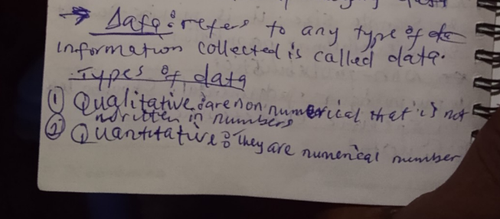 → Data: refers to any type of
information collected is called data.
Types of data
① Qualitative: are non numerical that is not
written in numbers
② Quantitative: They are numerical number